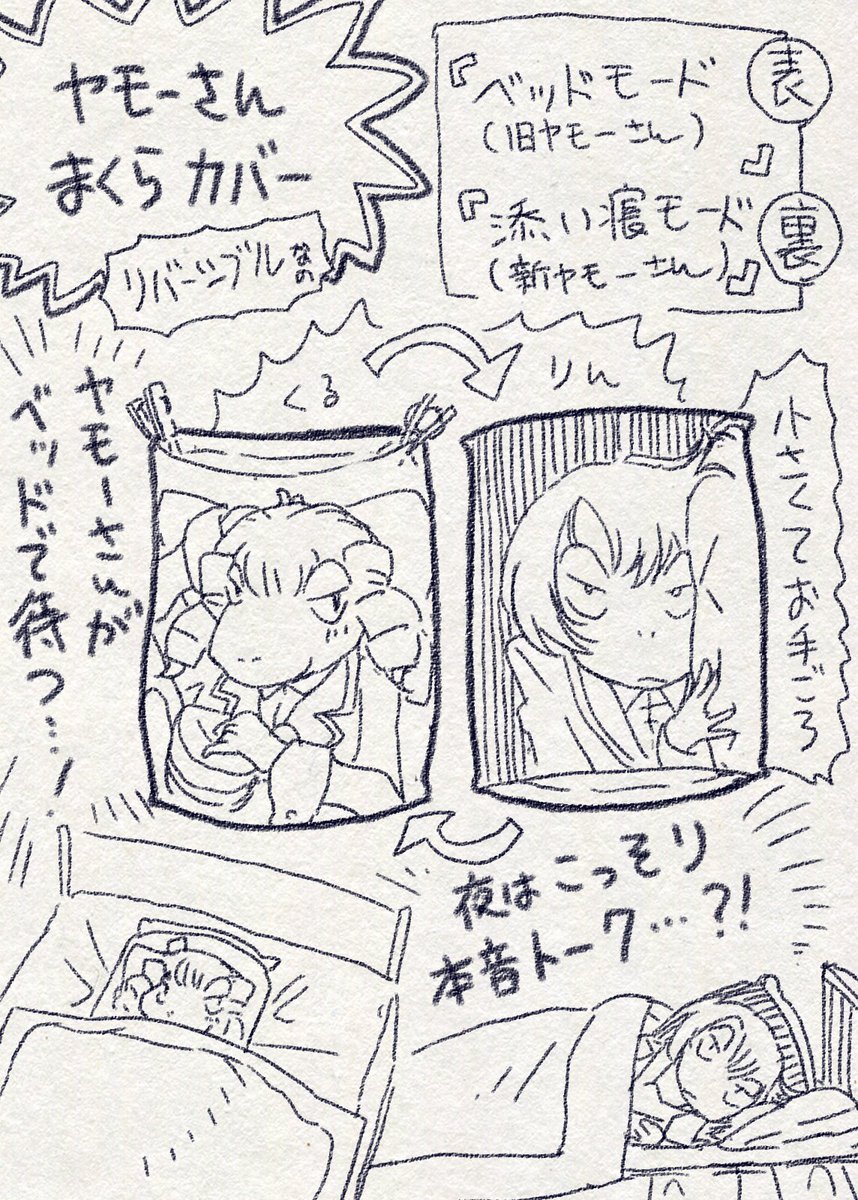 ヤモーさん
まくらカバー
リバーシブルなの
表
『ベッドモード
(旧ヤモーさん)』
裏
『添い寝モード
(新ヤモーさん)』
くる
りん
小さくてお手ごろ
ヤモーさんが
ベッドで待つ…!
夜はこっそり
本音トーク…?!